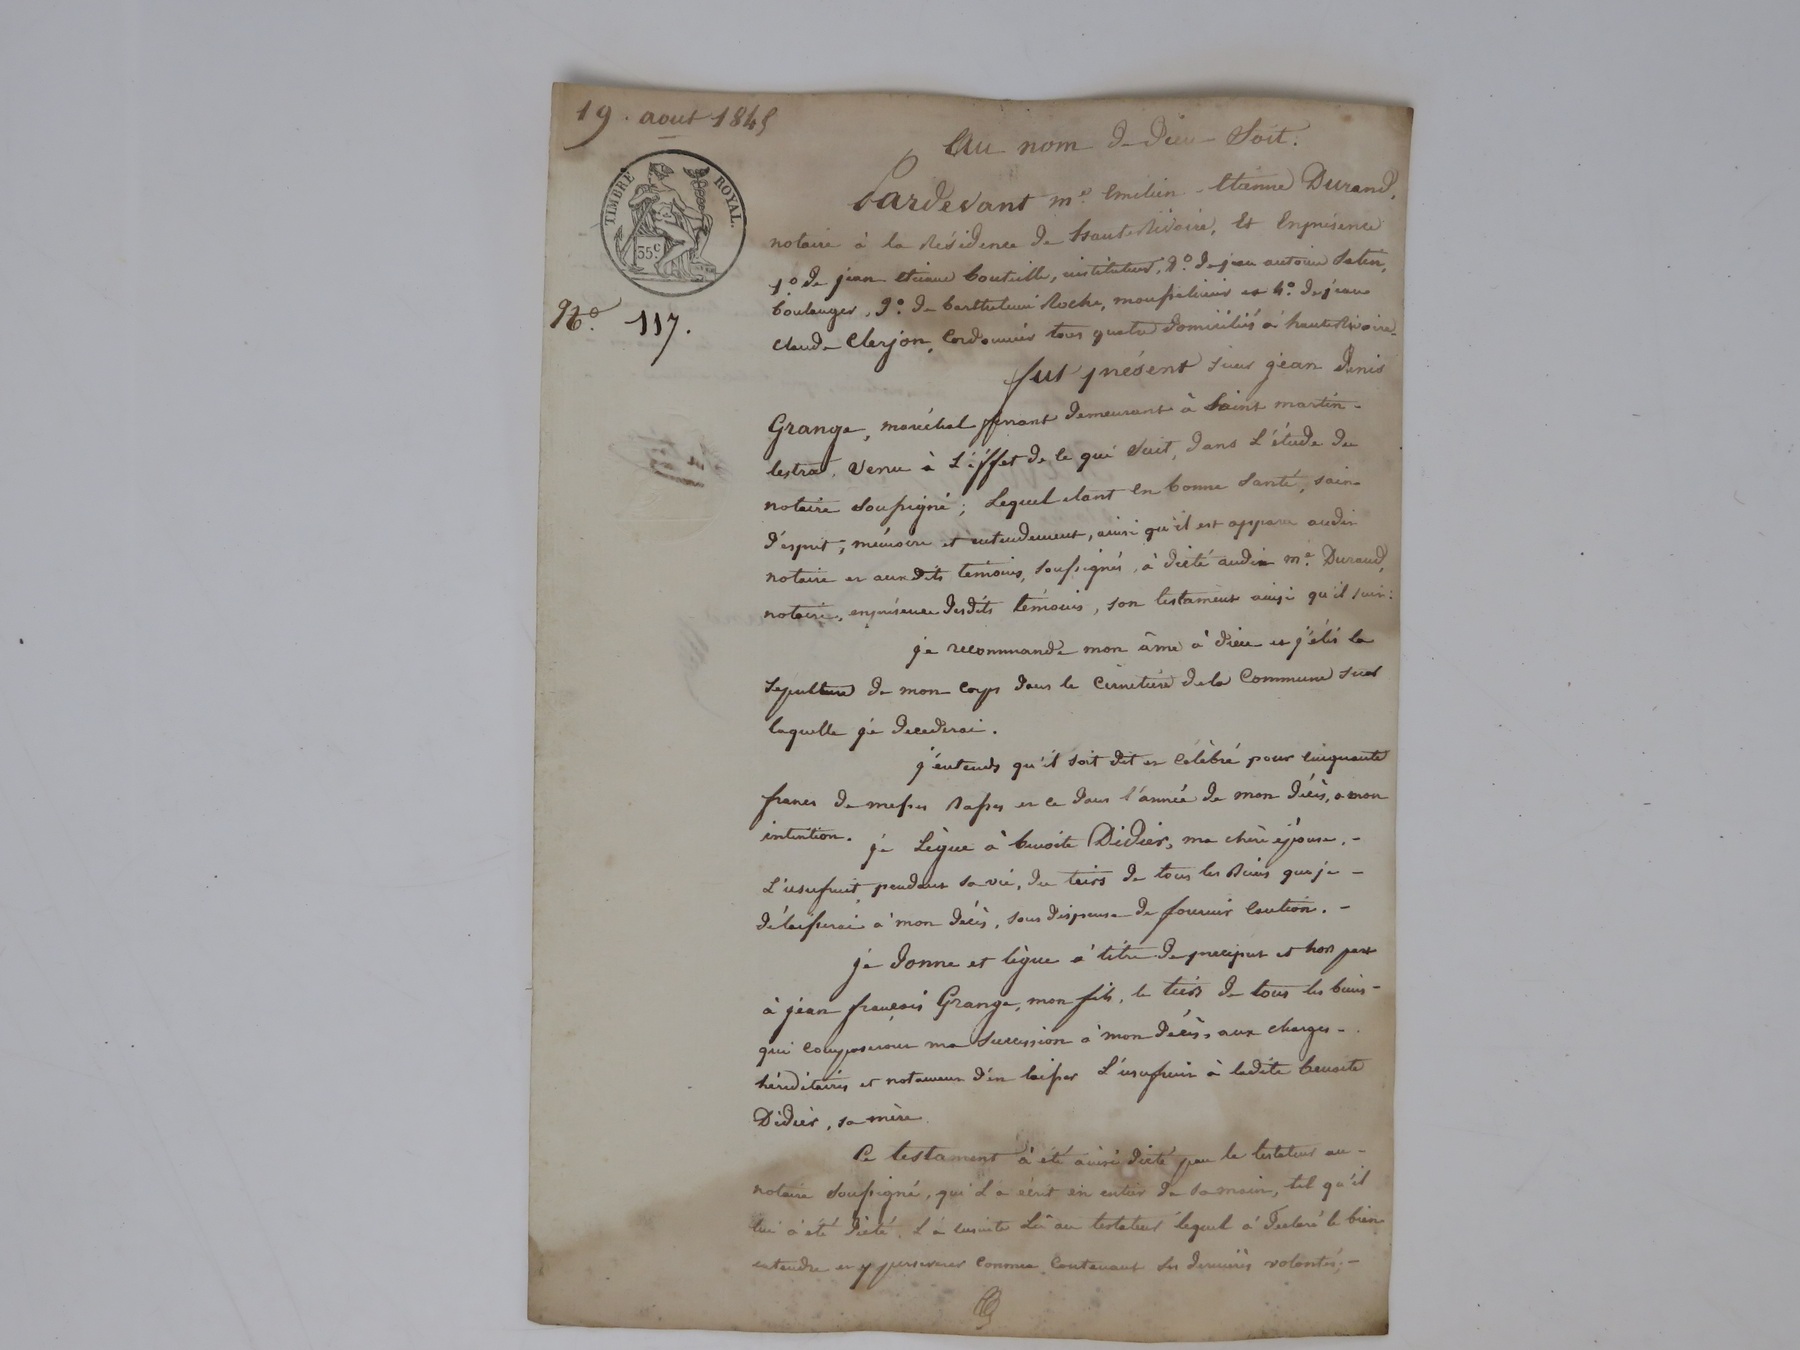 19. aout 1845
TIMBRE ROYAL.
35c.
No. 117.
Au nom de Dieu Soit.
Pardevant me. Emilien Etienne Durand,
notaire à la Résidence de hauteRivoire, Et Enprésence
1o. de jean etienne bouteille, instituteur, 2o. de jean antoine Satin,
boulanger, 3o. de barthelemi Roche, et 4o. de jean
Claude Clerjon, Cordonnier tous quatre domiciliés à hauteRivoire.
fut présent sieur jéan denis
Grange, maréchal ferrant demeurant à Saint martin
lestra, venu à L'éffet de ce qui suit, dans L'étude du
notaire soussigné; Lequel étant en bonne santé, sain
d'esprit, mémoire et entendement, ainsi qu'il est apparu audit
notaire et auxdits témoins, soussignés, à dicté audit me. Durand,
notaire, enprésence desdits témoins, son testament ainsi qu'il suit:
je recommande mon âme à dieu et j'élis la
sepulture de mon corps dans le cimetière dela Commune sur
laquelle jé decederai.
j'entends qu'il soit dit et célèbré pour cinquante
francs de messes basses et ce dans l'année de mon décès, a mon
intention. je Lègue à benoite Didier, ma chère épouse, -
L'usufruit, pendant sa vie, du tiers de tous les biens que je -
délaisserai à mon décès, sans dispense de fournir Caution. -
je donne et lègue à titre de preciput et hors part
à jéan françois Grange, mon fils, le tiers de tous les biens -
qui composeront ma succession à mon décès, aux charges -
héréditaires et notament d'en laisser L'usufruit à ladite benoite
Didier, sa mère.
Ce testament à été ainsi dicté par le testateur au -
notaire soussigné, qui L'a écrit en entier de sa main, tel qu'il
lui à été dicté. L'à ensuite Lû au testateur lequel à déclaré le bien
entendre et y perseverer comme contenant ses dernières volontés; -